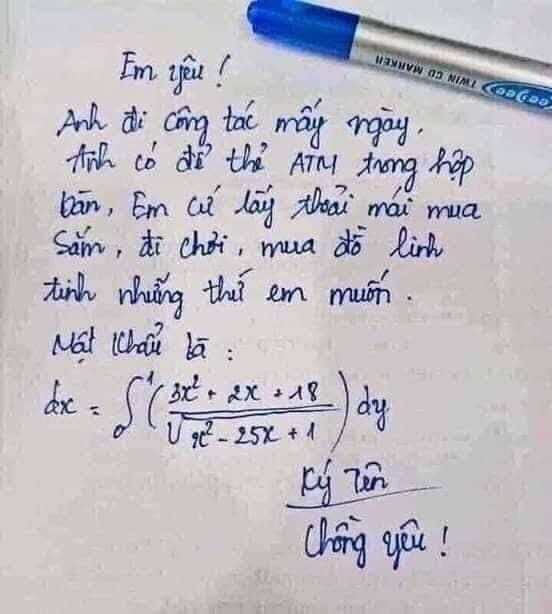 Em yêu !
Anh đi công tác mấy ngày,
Anh có để thẻ ATM trong hộp
bàn, Em cứ lấy thoải mái mua
Sắm, đi chơi, mua đồ linh
tinh những thứ em muốn.
Mật khẩu là :
dx = ∫₀¹ ( (3x² + 2x + 18) / √(x² - 25x + 1) ) dy
Ký Tên
Chồng yêu !
TWIN CD MARKER